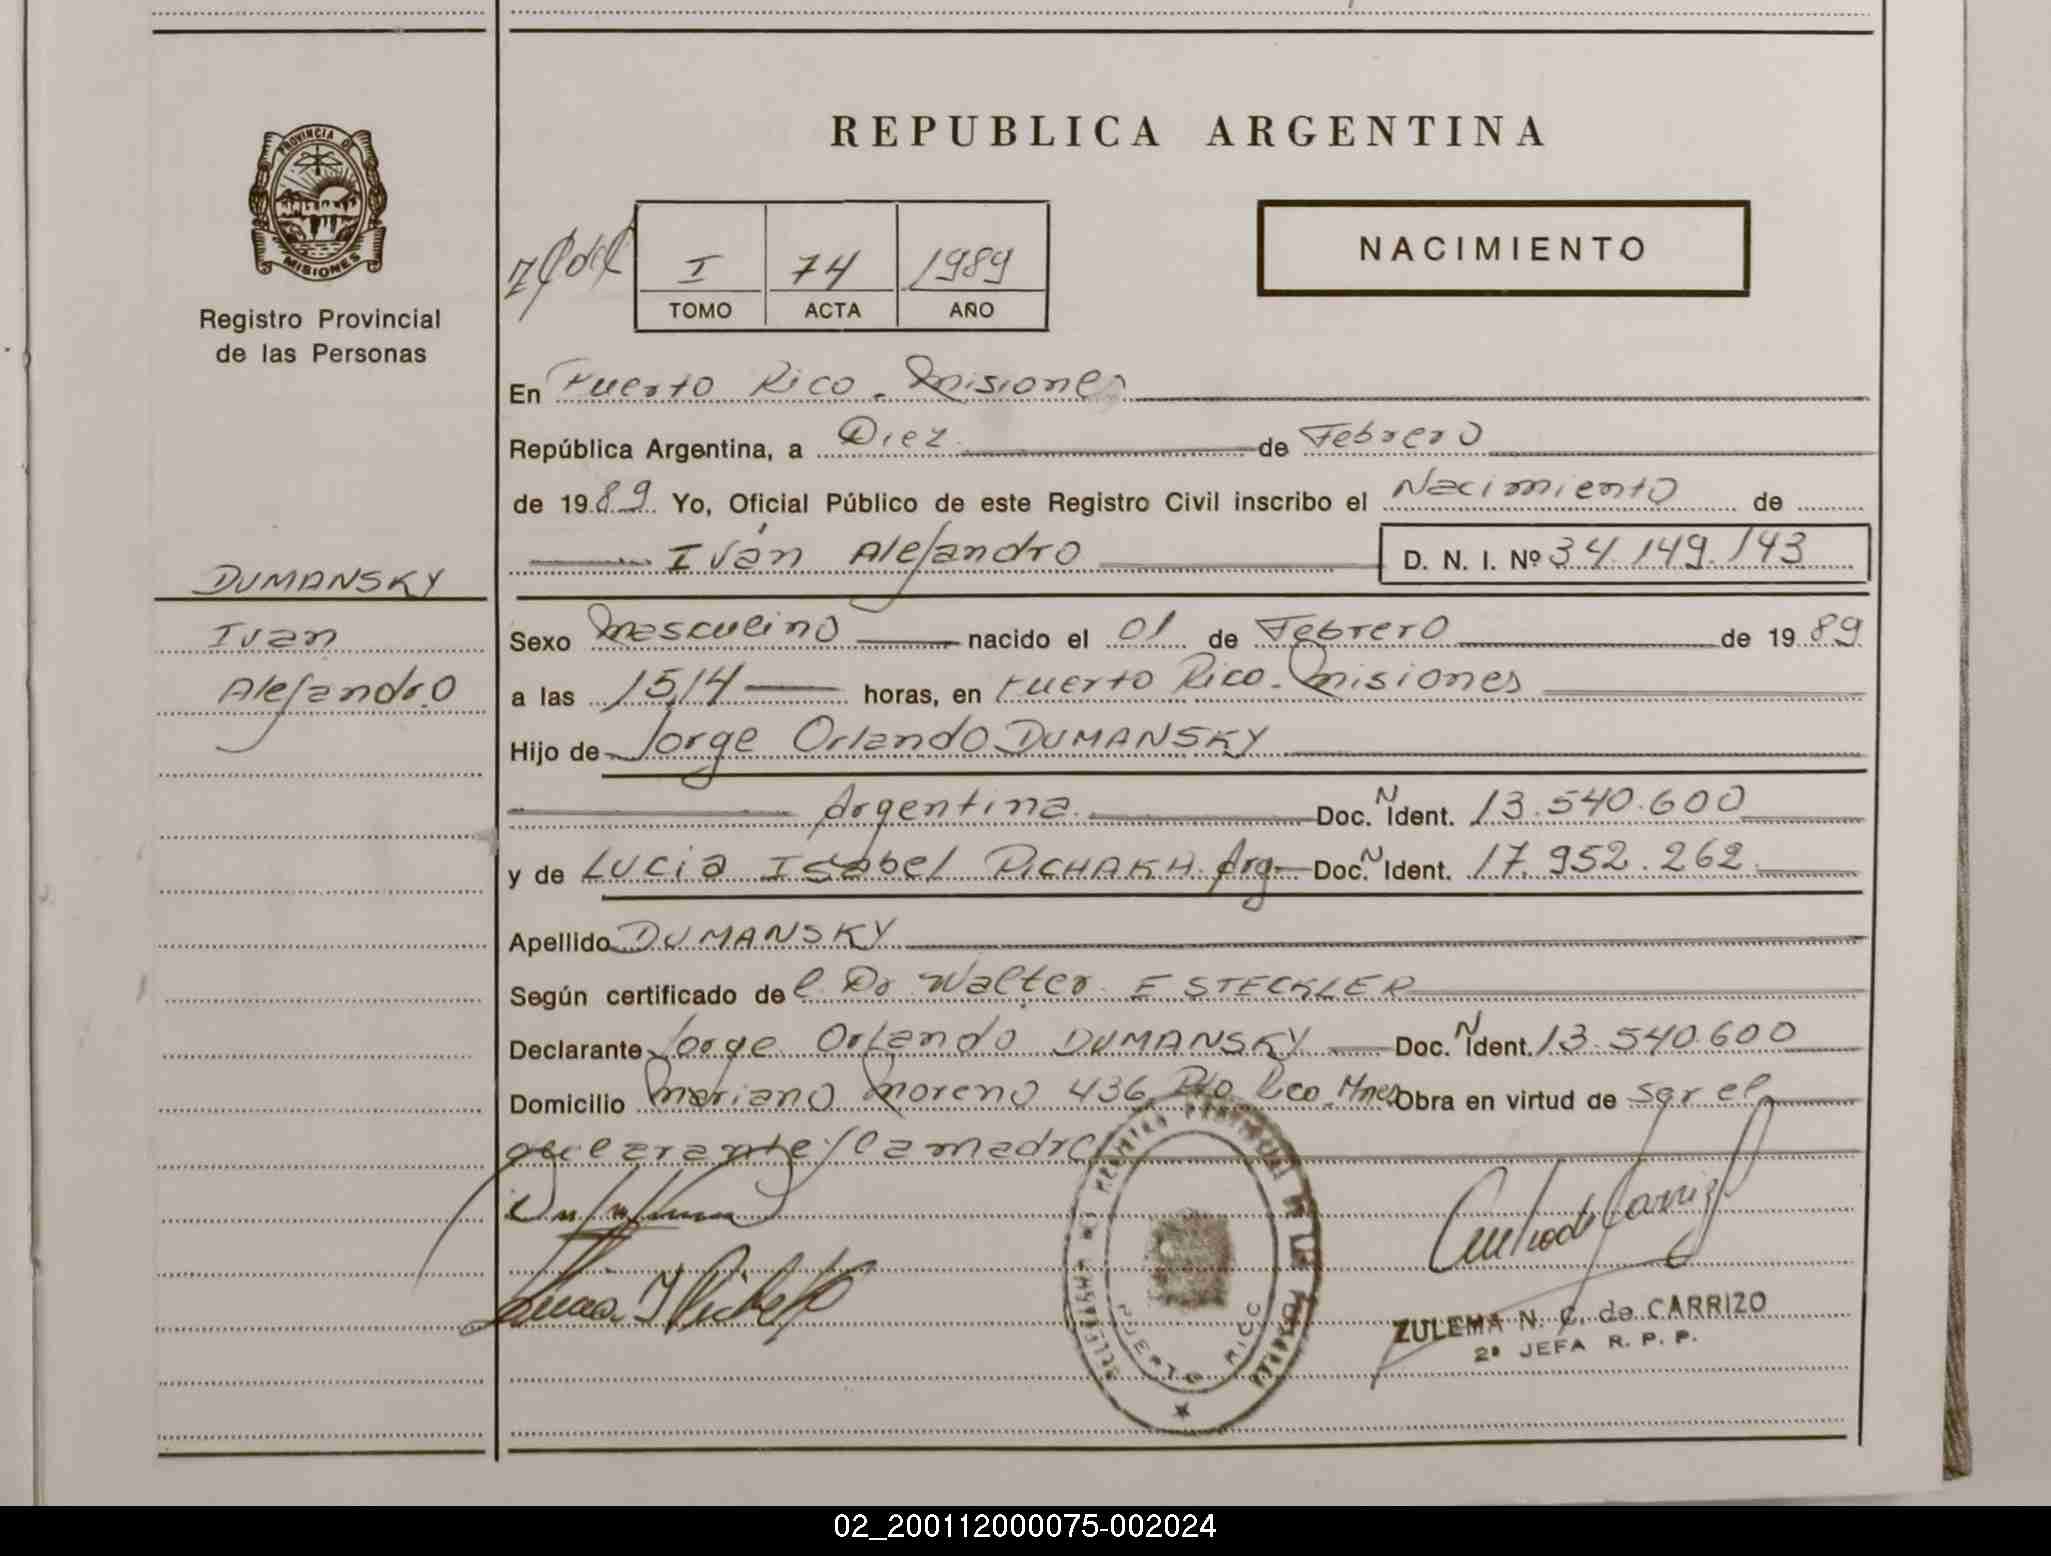 REPUBLICA ARGENTINA
PROVINCIA DE
MISIONES
Registro Provincial
de las Personas
I 74 1989
TOMO ACTA AÑO
NACIMIENTO
En Puerto Rico. Misiones
República Argentina, a Diez de Febrero
de 1989 Yo, Oficial Público de este Registro Civil inscribo el Nacimiento de
Iván Alejandro D. N. I. Nº 34.149.143
DUMANSKY
Ivan
Alejandro
Sexo Masculino nacido el 01 de Febrero de 1989
a las 15,14 horas, en Puerto Rico. Misiones
Hijo de Jorge Orlando DUMANSKY
Argentina. Doc. N Ident. 13.540.600
y de Lucia Isabel PICHAKH. Arg Doc. N Ident. 17.952.262
Apellido DUMANSKY
Según certificado del Dr Walter E STECKLER
Declarante Jorge Orlando DUMANSKY Doc. N Ident. 13.540.600
Domicilio Mariano Moreno 436 Pto Rco. Mnes Obra en virtud de ser el
/la madre
PUERTO RICO
ZULEMA N. C. de CARRIZO
2ª JEFA R. P. P.
02_200112000075-002024